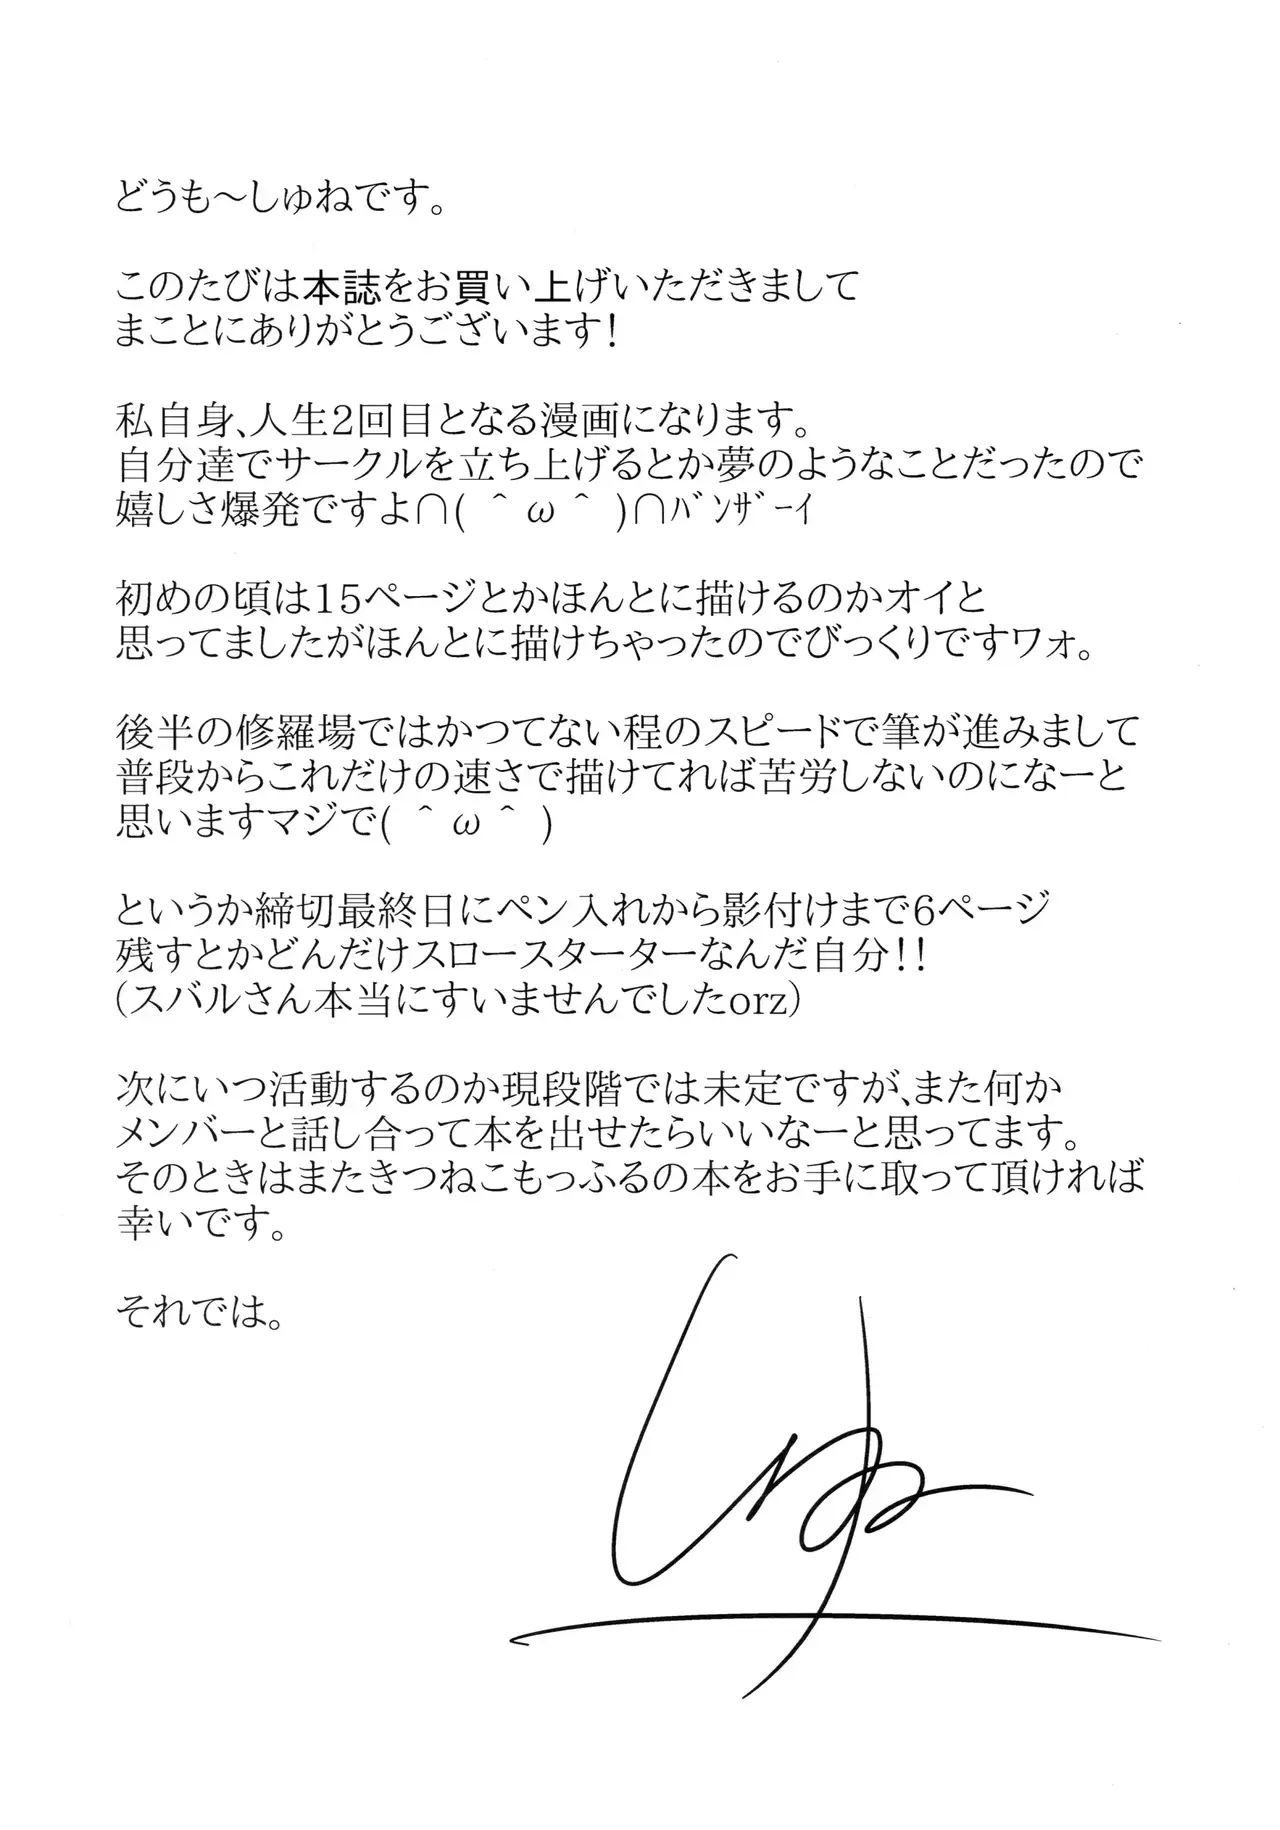 どうも～しゅねです。
このたびは本誌をお買い上げいただきまして
まことにありがとうございます！
私自身、人生2回目となる漫画になります。
自分達でサークルを立ち上げるとか夢のようなことだったので
嬉しさ爆発ですよ∩( ＾ω＾ )∩ﾊﾞﾝｻﾞｰｲ
初めの頃は15ページとかほんとに描けるのかオイと
思ってましたがほんとに描けちゃったのでびっくりですワォ。
後半の修羅場ではかつてない程のスピードで筆が進みまして
普段からこれだけの速さで描けてれば苦労しないのになーと
思いますマジで( ＾ω＾ )
というか締切最終日にペン入れから影付けまで6ページ
残すとかどんだけスロースターターなんだ自分！！
(スバルさん本当にすいませんでしたorz)
次にいつ活動するのか現段階では未定ですが、また何か
メンバーと話し合って本を出せたらいいなーと思ってます。
そのときはまたきつねこもっふるの本をお手に取って頂ければ
幸いです。
それでは。
しゅね